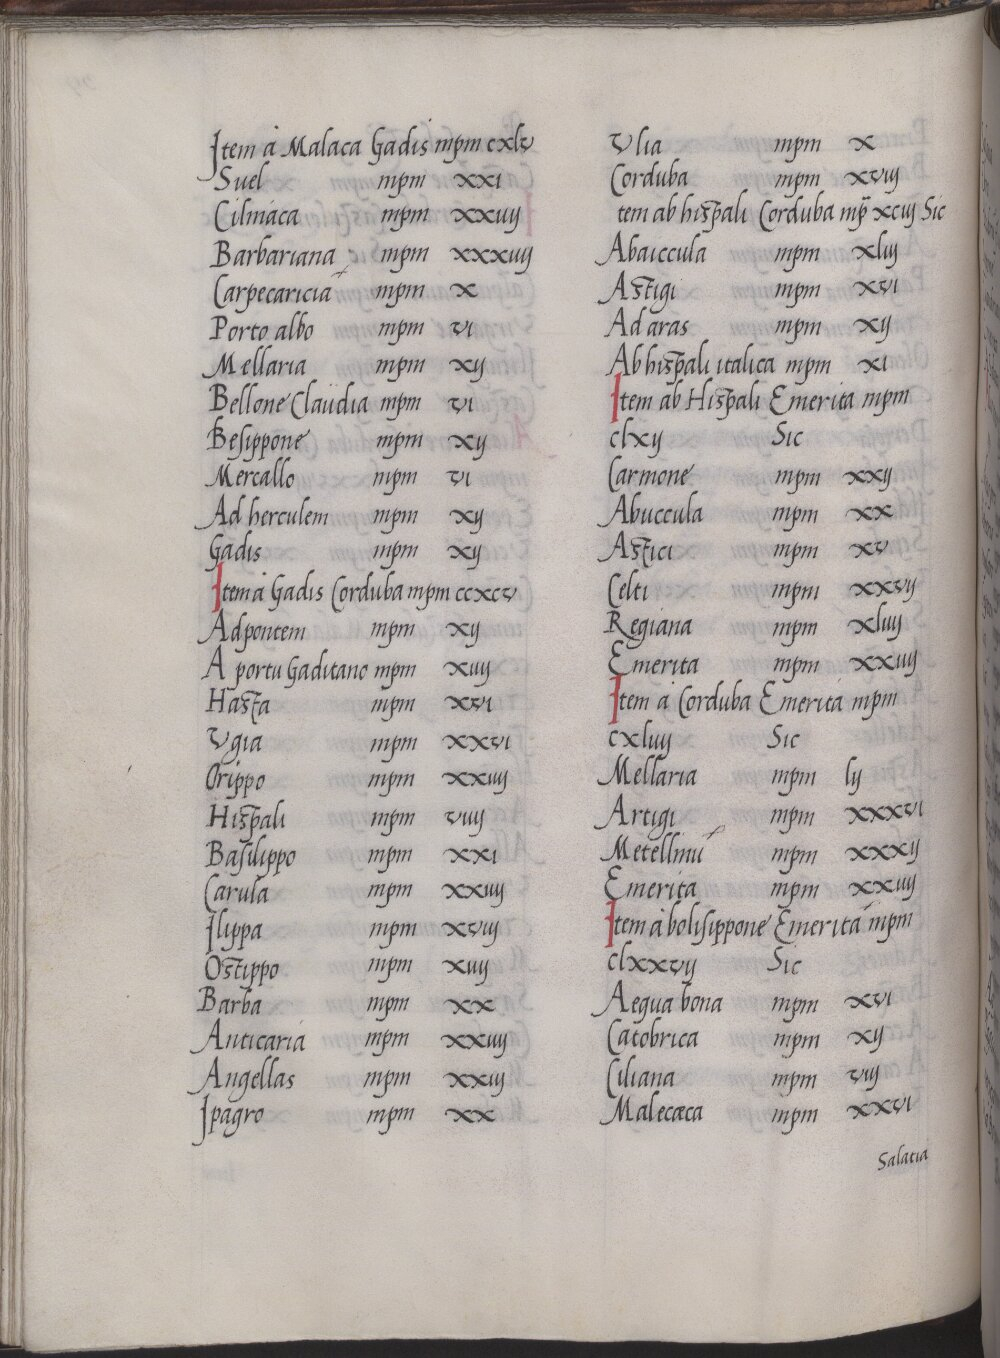 Item à Malaca Gadis mpm cxlv
Suel mpm xxi
Cilniaca mpm xxiiij
Barbariana mpm xxxiiij
Carpecariciā mpm x
Porto albo mpm vi
Mellaria mpm xij
Bellone Claudia mpm vi
Besippone mpm xij
Mercallo mpm vi
Ad herculem mpm xij
Gadis mpm xij
Item à Gadis Corduba mpm ccxcv
Ad pontem mpm xij
A portu Gaditano mpm xiiij
Hasta mpm xvi
Vgia mpm xxvi
Orippo mpm xxiiij
Hispali mpm viiij
Basilippo mpm xxi
Carula mpm xxiiij
Ilippa mpm xviij
Ostippo mpm xiiij
Barba mpm xx
Anticaria mpm xxiiij
Angellas mpm xxiij
Ipagro mpm xx
Vlia mpm x
Corduba mpm xviij
tem ab hispali Corduba mp̄ xciij Sic
Abaiccula mpm xliij
Astigi mpm xvi
Ad aras mpm xij
Ab hispali italica mpm xi
Item ab Hispali Emerita mpm
clxij Sic
Carmone mpm xxij
Abuccula mpm xx
Astici mpm xv
Celti mpm xxvij
Regiana mpm xliiij
Emerita mpm xxiiij
Item à Corduba Emerita mpm
cxliiij Sic
Mellaria mpm lij
Artigi mpm xxxvi
Metellinū mpm xxxij
Emerita mpm xxiiij
Item à bolisippone Emerita mpm
clxxvij Sic
Aequa bona mpm xvi
Catobrica mpm xij
Ciliana mpm viij
Malecæca mpm xxvi
Salatia